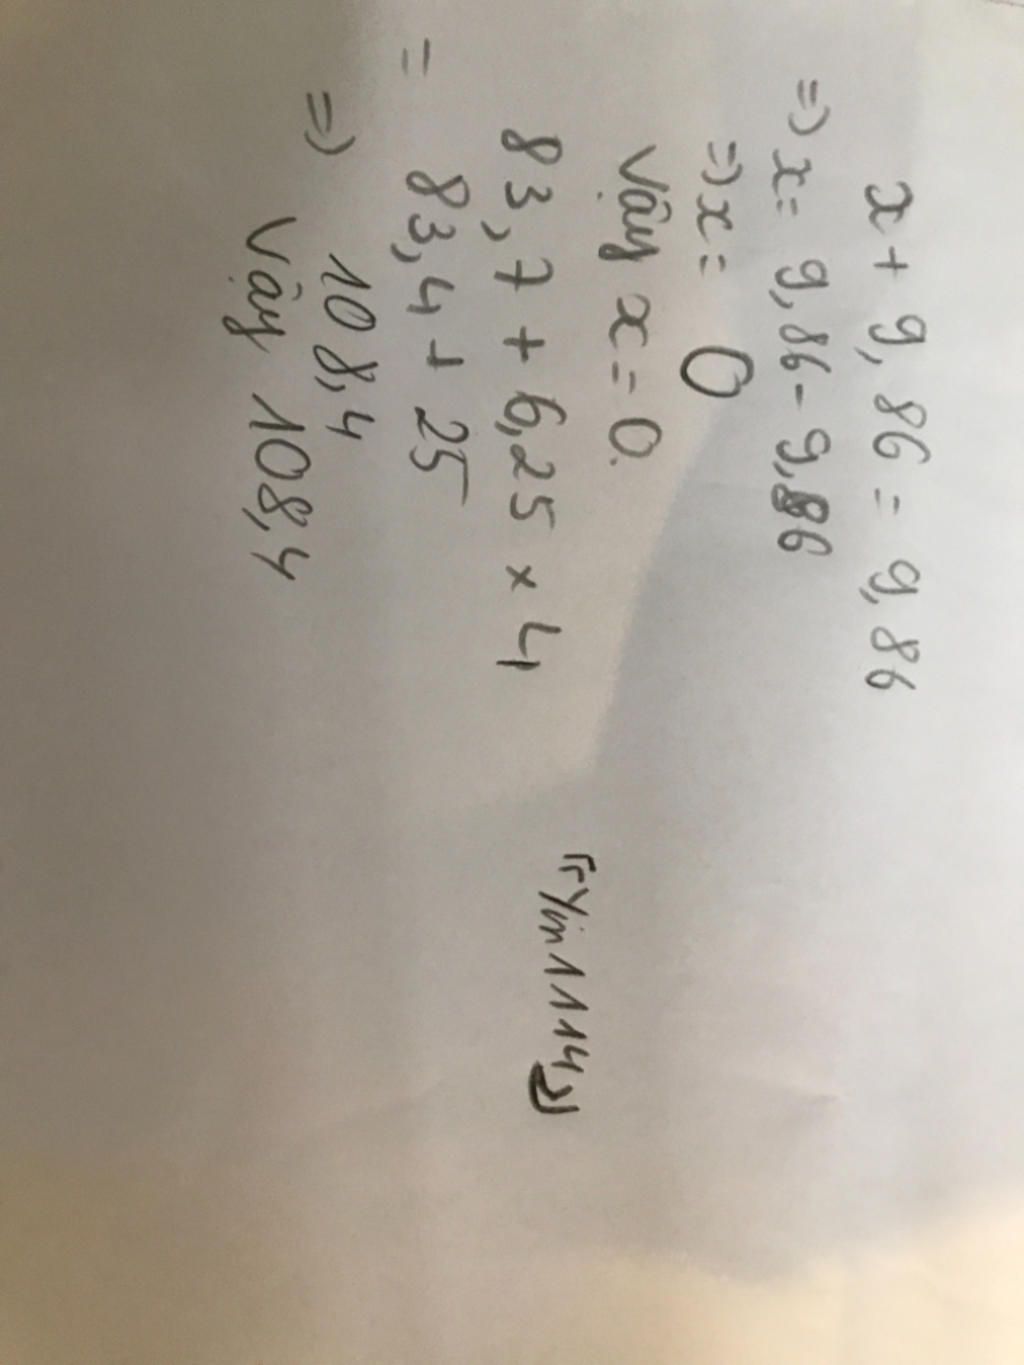 x + 9,86 = 9,86
=> x = 9,86 - 9,86
=> x = 0
Vậy x = 0.
83,7 + 6,25 x 4
= 83,4 + 25
=> 108,4
Vậy 108,4
『Yin1114』